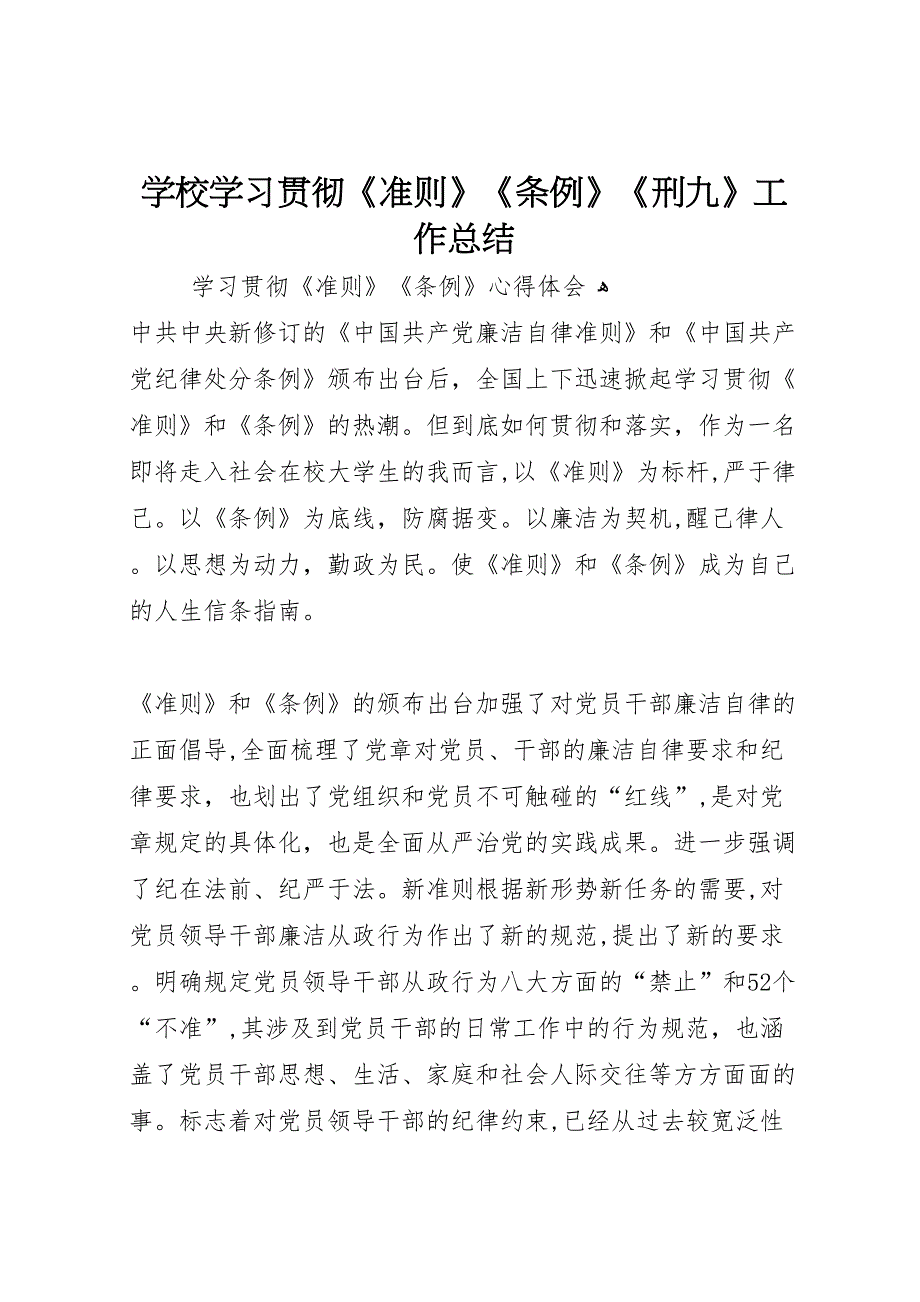 学校学习贯彻《准则》《条例》《刑九》工
作总结
学习贯彻《准则》《条例》心得体会 ﻫ
中共中央新修订的《中国共产党廉洁自律准则》和《中国共产
党纪律处分条例》颁布出台后，全国上下迅速掀起学习贯彻《
准则》和《条例》的热潮。但到底如何贯彻和落实，作为一名
即将走入社会在校大学生的我而言,以《准则》为标杆,严于律
己。以《条例》为底线，防腐据变。以廉洁为契机,醒己律人
。以思想为动力，勤政为民。使《准则》和《条例》成为自己
的人生信条指南。
《准则》和《条例》的颁布出台加强了对党员干部廉洁自律的
正面倡导,全面梳理了党章对党员、干部的廉洁自律要求和纪
律要求，也划出了党组织和党员不可触碰的“红线”,是对党
章规定的具体化，也是全面从严治党的实践成果。进一步强调
了纪在法前、纪严于法。新准则根据新形势新任务的需要,对
党员领导干部廉洁从政行为作出了新的规范,提出了新的要求
。明确规定党员领导干部从政行为八大方面的“禁止”和52个
“不准”,其涉及到党员干部的日常工作中的行为规范，也涵
盖了党员干部思想、生活、家庭和社会人际交往等方方面面的
事。标志着对党员领导干部的纪律约束,已经从过去较宽泛性